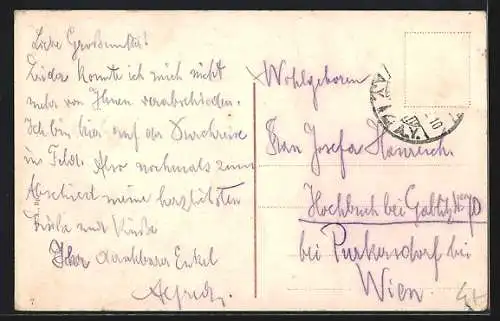 Liebe Großmutter!
Leider konnte ich mich nicht
mehr von Ihnen verabschieden.
Ich bin hier auf der Durchreise
ins Feld. Also nochmals zum
Abschied meine herzlichsten
Grüße und Küsse
Ihr dankbarer Enkel
Alfred.
Wohlgeboren
Frau Josefa Heinreich
Hochbuch bei Gablitz
bei Purkersdorf bei
Wien.